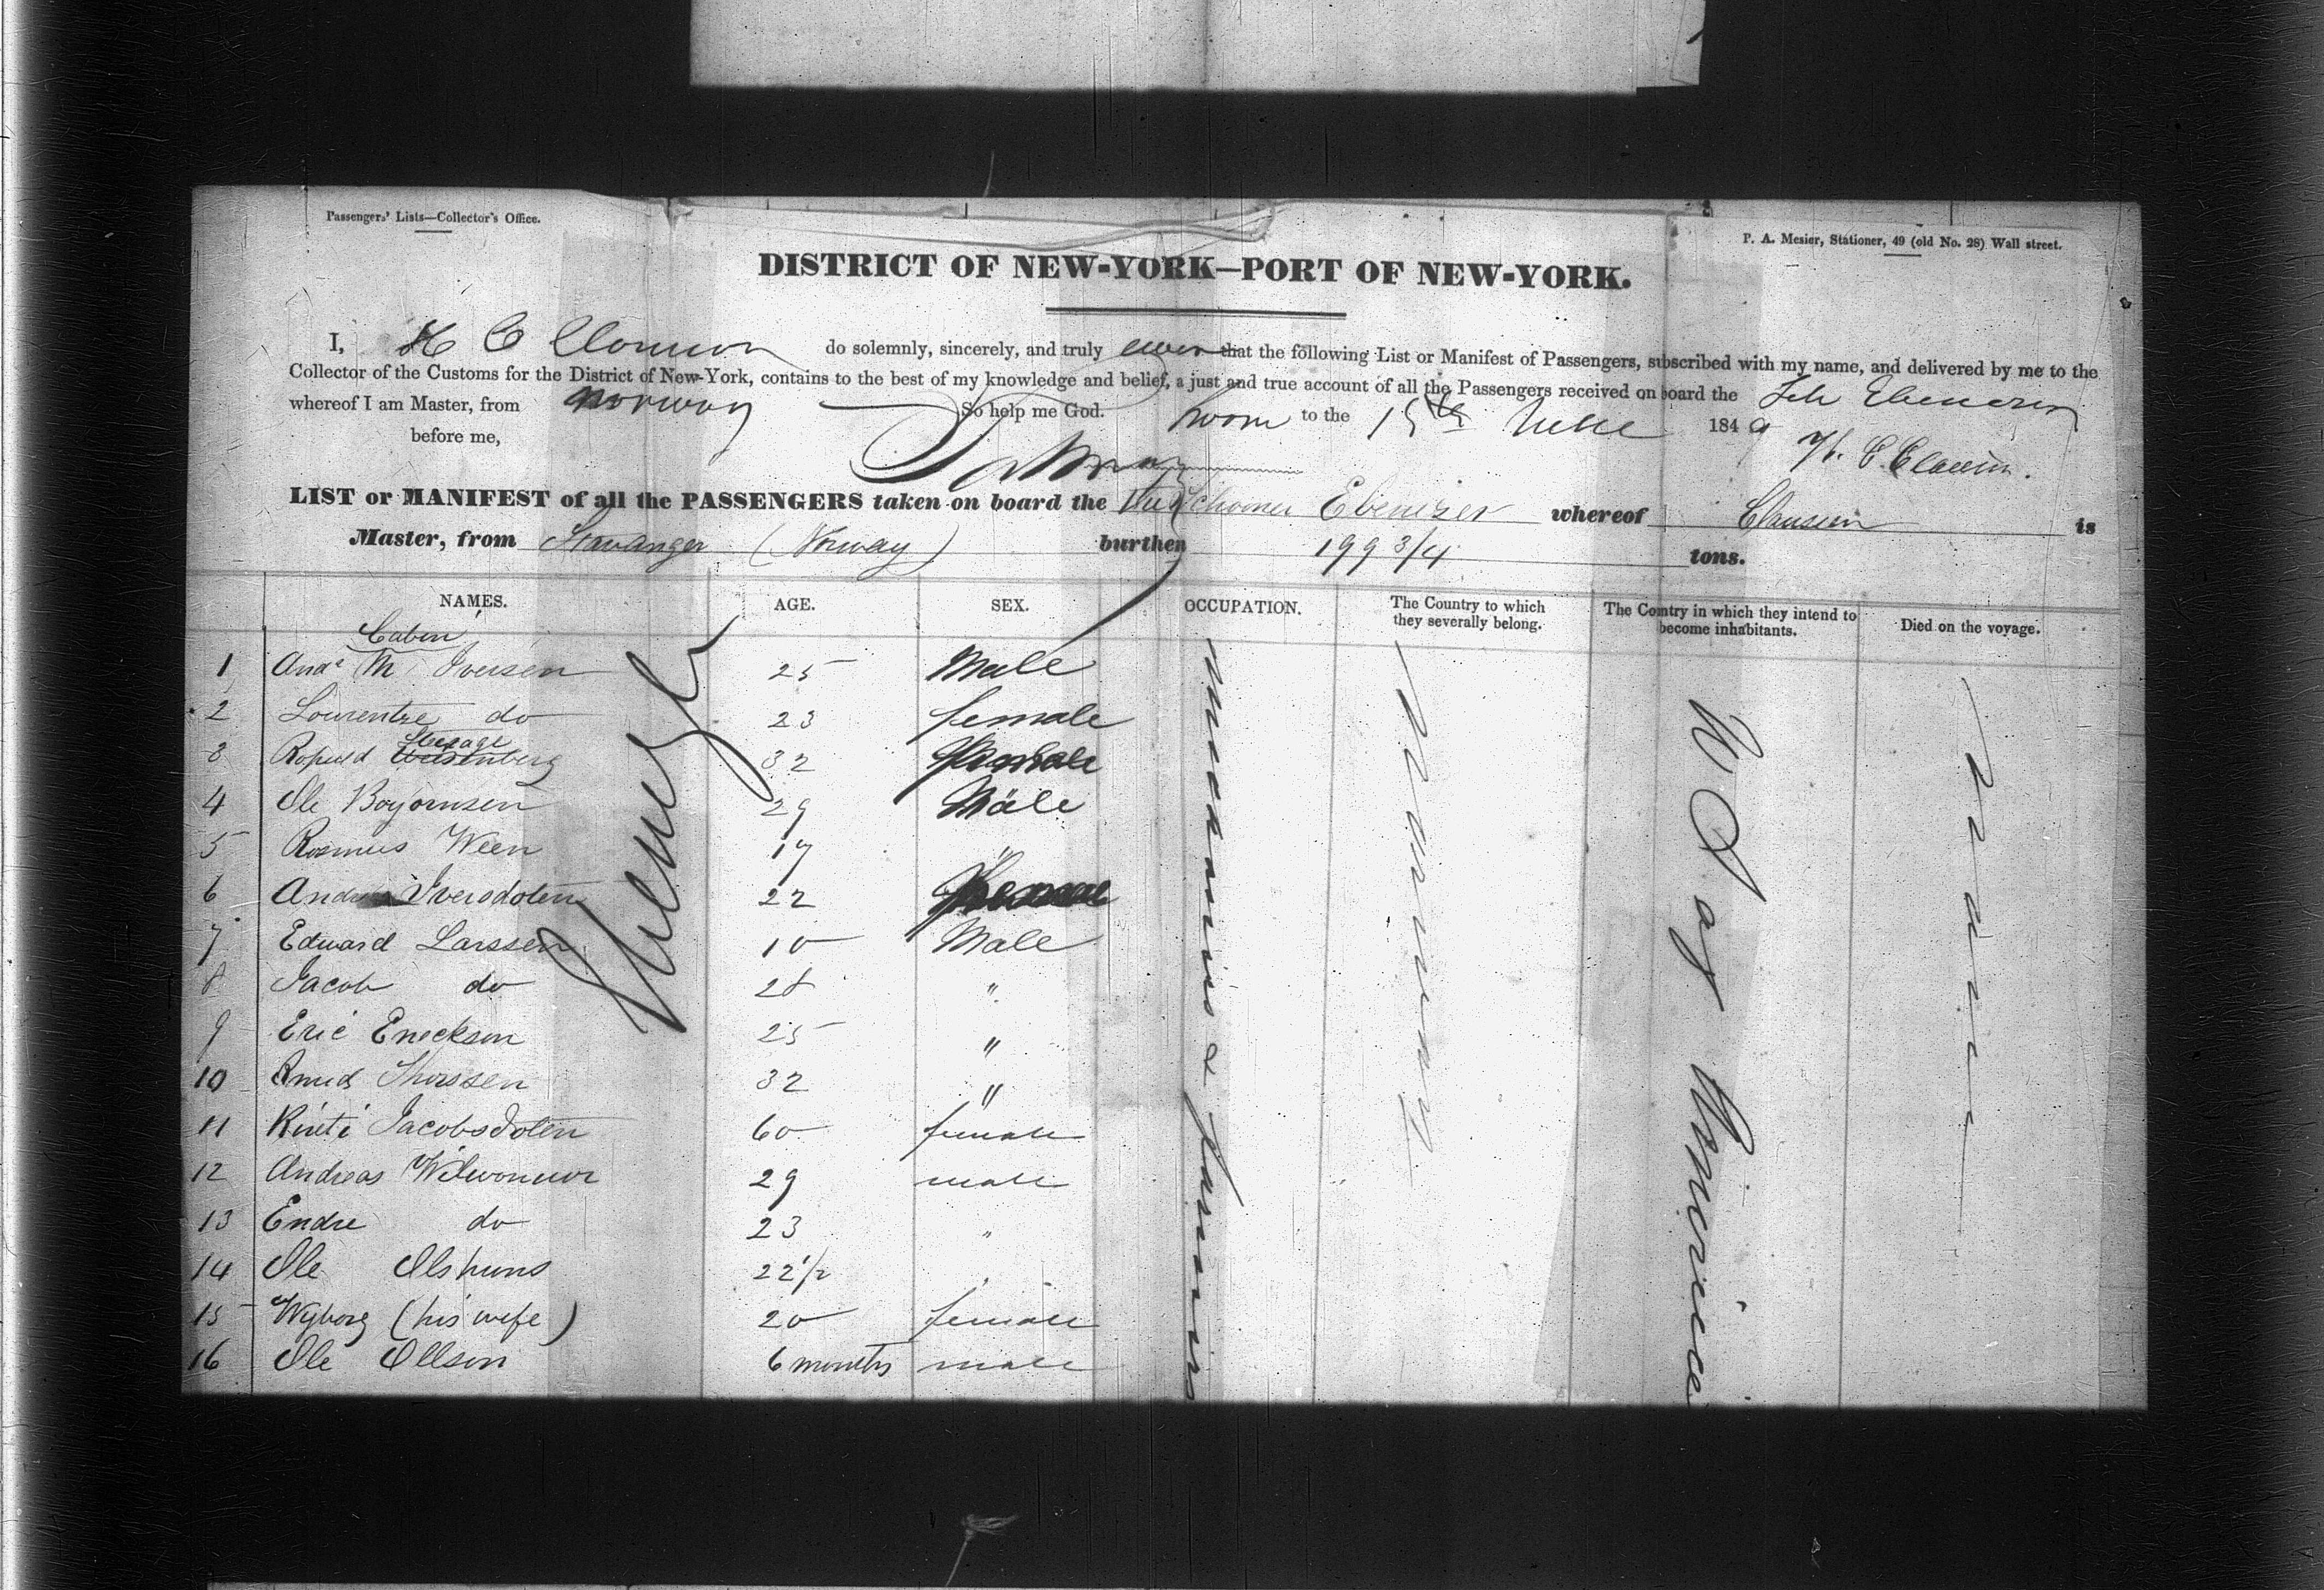 Passengers' Lists—Collector's Office.
P. A. Mesier, Stationer, 49 (old No. 28) Wall street.
DISTRICT OF NEW-YORK—PORT OF NEW-YORK.
I, H C Clausen do solemnly, sincerely, and truly swear that the following List or Manifest of Passengers, subscribed with my name, and delivered by me to the
Collector of the Customs for the District of New-York, contains to the best of my knowledge and belief, a just and true account of all the Passengers received on board the Sch Ebenezer
whereof I am Master, from Norway So help me God. Sworn to the 15th June 1849
before me, H. C. Clausen.
LIST or MANIFEST of all the PASSENGERS taken on board the Schooner Ebenezer whereof Clausen is
Master, from Stavanger (Norway) burthen 199 3/4 tons.
NAMES. AGE. SEX. OCCUPATION. The Country to which they severally belong. The Country in which they intend to become inhabitants. Died on the voyage.
Cabin
1 And. M Iversen 25 Male
2 Lourentze do 23 female
Steerage
3 32 female
4 Ole Bojornsen 29 Male
5 Rasmus Ween 17 "
6 Iversdoten 22
7 Edward Larssen 10 Male
8 Jacob do 28 "
9 Eric Enickson 25 "
10 Knud Thorssen 32 "
11 Jacobsdoten 60 female
12 Andreas 29 male
13 Endre do 23 "
14 Ole 22 1/2
15 Wyborg (his wife) 20 female
16 Ole Ollson 6 months male
Mechanics & farmers
U S of America